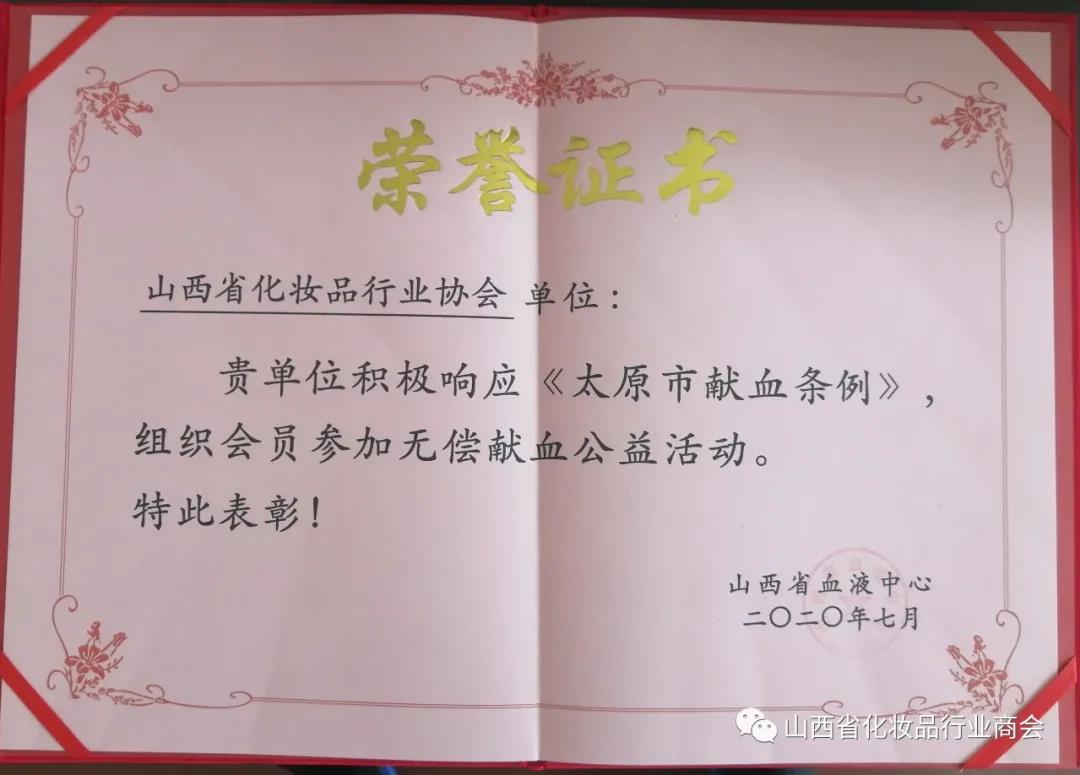 荣誉证书
山西省化妆品行业协会 单位：
贵单位积极响应《太原市献血条例》，
组织会员参加无偿献血公益活动。
特此表彰！
山西省血液中心
二〇二〇年七月
山西省化妆品行业商会